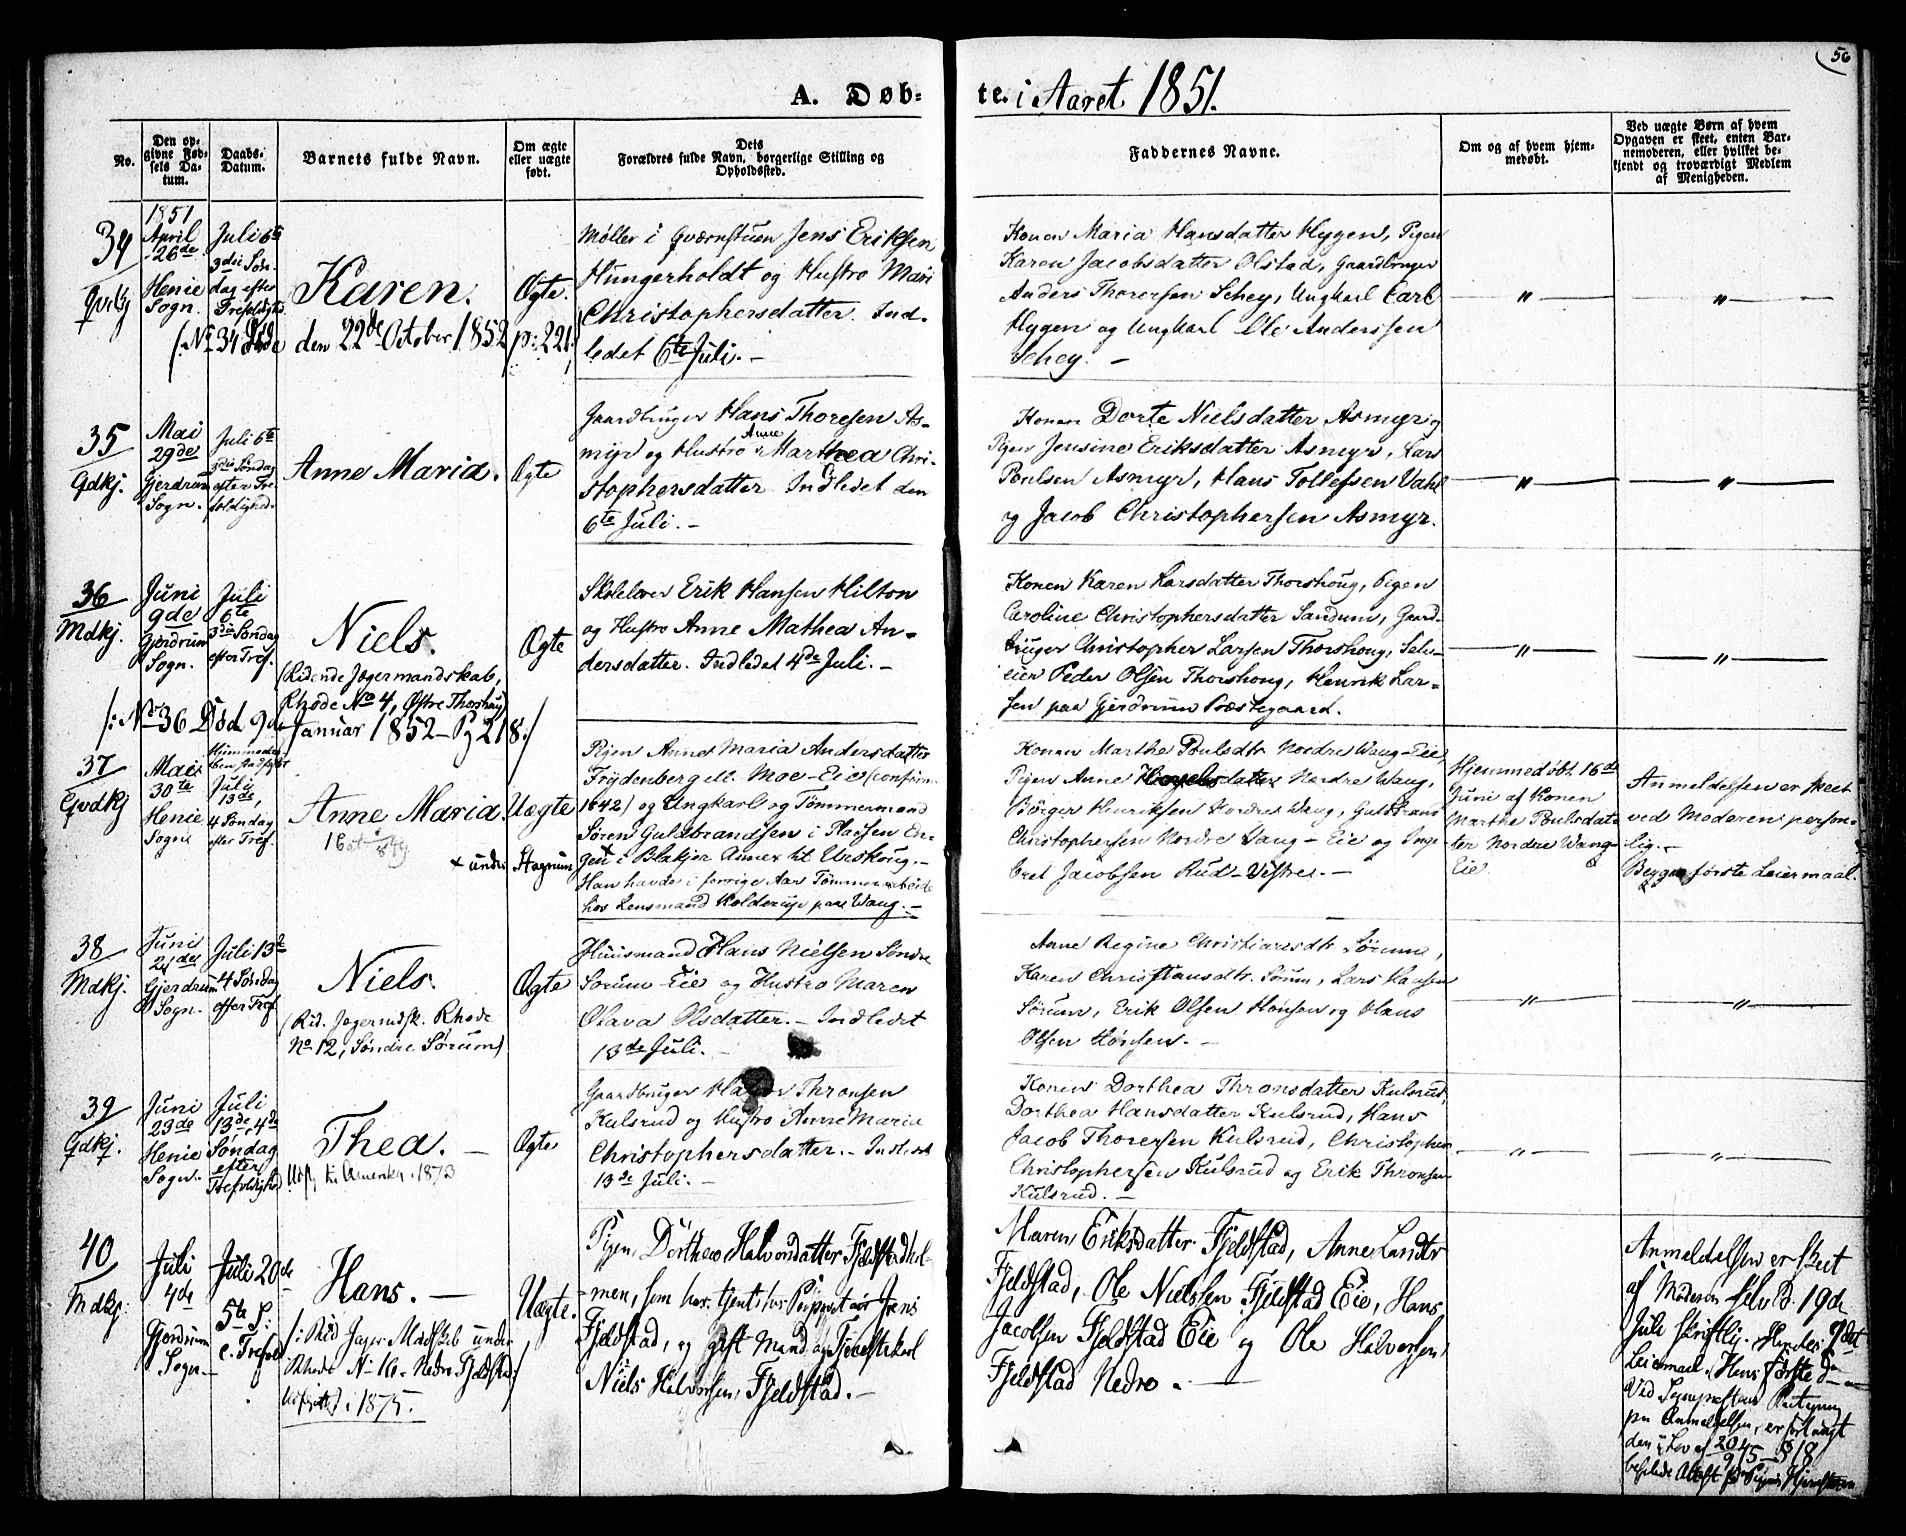 56
A. Døb-
te. i Aaret 1851.
No.
Den op-
givne Fød-
sels Da-
tum.
Daabs-
Datum.
Barnets fulde Navn.
Om ægte
eller uægte
født.
Dets
Forældres fulde Navn, borgerlige Stilling og
Opholdssted.
Faddernes Navne.
Om og af hvem hjem-
medøbt.
Ved uægte Børn af hvem
Opgaven er skeet, enten Bar-
nemoderen, eller hvilket be-
kjendt og troværdigt Medlem
af Menigheden.
34
1851
April
26de
Henie
Sogn.
Juli 6te
3die Søn-
dag efter
Trefoldighed
Karen.
Ægte.
Møller i Qværnstuen Jens Eriksen
Hungerholdt og Hustro Mari
Christophersdatter. Ind-
ledet 6te Juli. -
Konen Maria Hansdatter Hygen, Pigen
Karen Jacobsdatter Olstad, Gaardbruger
Anders Thoresen Schey, Ungkarl Carl
Hygen og Ungkarl Ole Anderssen
Schey. -
— " —
— " —
/: No 34 Død den 22de October 1852 p: 221
35
Gdkj.
Mai
29de
Gjerdrum
Sogn.
Juli 6te
3die Søndag
efter Tre-
foldighed.
Anne Maria.
Ægte
Gaardbruger Hans Thoresen As-
myr og Hustro Anne Marthea Chri-
stophersdatter. Indledet den
6te Juli. -
Konen Dorte Nielsdatter Asmyr og
Pigen Jensine Eriksdatter Asmyr, Lars
Poulsen Asmyr, Hans Tollefsen Vahl
og Jacob Christophersen Asmyr.
— " —
— " —
36
Mdkj.
Juni
9de
Gjerdrum
Sogn.
Juli
6te
3die Søndag
efter Tref.
Niels.
(Ridende Jægermandskab,
Rhode No 4, Østre Thorshaug)
Ægte
Skolelærer Erik Hansen Hilton
og Hustro Anne Mathea An-
dersdatter. Indledet 4de Juli. -
Konen Karen Larsdatter Thorshoug, Pigen
Caroline Christophersdatter Sandum, Gaard-
bruger Christopher Larsen Thorshoug, Selv-
eier Peder Olsen Thorshoug, Henrik Lar-
sen paa Gjerdrum Præstegaard.
— " —
— " —
/: No 36 Død 9de Januar 1852 - Pg 218 :/
37
Gvdkj
Mai
30te
Henie
Sogn
Juli
13de,
4 Søndag
efter Tref.
Anne Maria.
Uægte
Pigen Anne Maria Andersdatter
Frydenberg ell. Moe-Eie (confirm.
1842) og Ungkarl og Tømmermand
Søren Guldbrandsen i Pladsen En-
gen i Blakjer Annex til Urskoug. -
+ under
Han havde i forrige Aar Tømmerarbeide
hos Lensmand Kolderup paa Waug. -
Konen Marthe Poulsdtr. Nordre Waug-Eie,
Pigen Anne Nordre Waug,
Børger Henriksen Nordre Waug, Guldbrand
Christophersen Nordre Waug-Eie og Inge-
bret Jacobsen Rud-Vestre. -
Hjemmedøbt 16de
Juni af Konen
Marthe Poulsdat-
ter Nordre Waug-
Eie.
Anmeldelsen er skeet
ved Moderen person-
lig. -
Begges første Leiermaal.
38
Mdkj.
Juni
21de
Gjerdrum
Sogn.
Juli 13de
4 Søndag
efter Tref.
Niels.
(Rid. Jægermdsk. Rhode
No 12, Søndre Sørum)
Ægte
Huusmand Hans Nielsen Søndre
Sørum-Eie og Hustro Maren
Olava Olsdatter. - Indledet
13de Juli. -
Anne Regine Christiansdtr. Sørum,
Karen Christiansdtr. Sørum, Lars Hansen
Sørum, Erik Olsen Hønsen og Hans
Olsen Hønsen. -
— " —
— " —
39
Gdkj.
Juni
23de
Henie
Sogn.
Juli
13de, 4de
Søndag
efter
Trefoldighed
Thea. -
til Amerika. 1873
Ægte
Gaardbruger Thronsen
Kulsrud og Hustro Anne Maria
Christophersdatter. - Indledet
13de Juli. -
Konen Dorthea Thronsdatter Kulsrud,
Dorthea Hansdatter Kulsrud, Hans
Jacob Thoresen Kulsrud, Christopher
Christophersen Kulsrud og Erik Thronsen
Kulsrud. -
— " —
— " —
40
Mdkj.
Juli
4de
Gjerdrum
Sogn.
Juli 20de
5te S.
e. Trefol
Hans. -
/: Rid Jæger Mdskb under
Rhode No 16. Nedre Fjeldstad :/
Udflyttet i 1875.
Uægte.
Pigen Dorthea Halvorsdatter Fjeldstadhol-
men, som har tjent hos Jens
Fjeldstad, og gift Mand og Tjenestekarl
Niels Halvorsen Fjeldstad. -
Maren Eriksdatter Fjeldstad, Anne
Fjeldstad, Ole Nielsen Fjeldstad Eie, Hans
Jacobsen Fjeldstad Eie og Ole Halvorsen
Fjeldstad Nedre. -
Anmeldelsen er skeet
af Moderen selv d. 19de
Juli skriftlig. Hendes
Leiermaal. Hans første